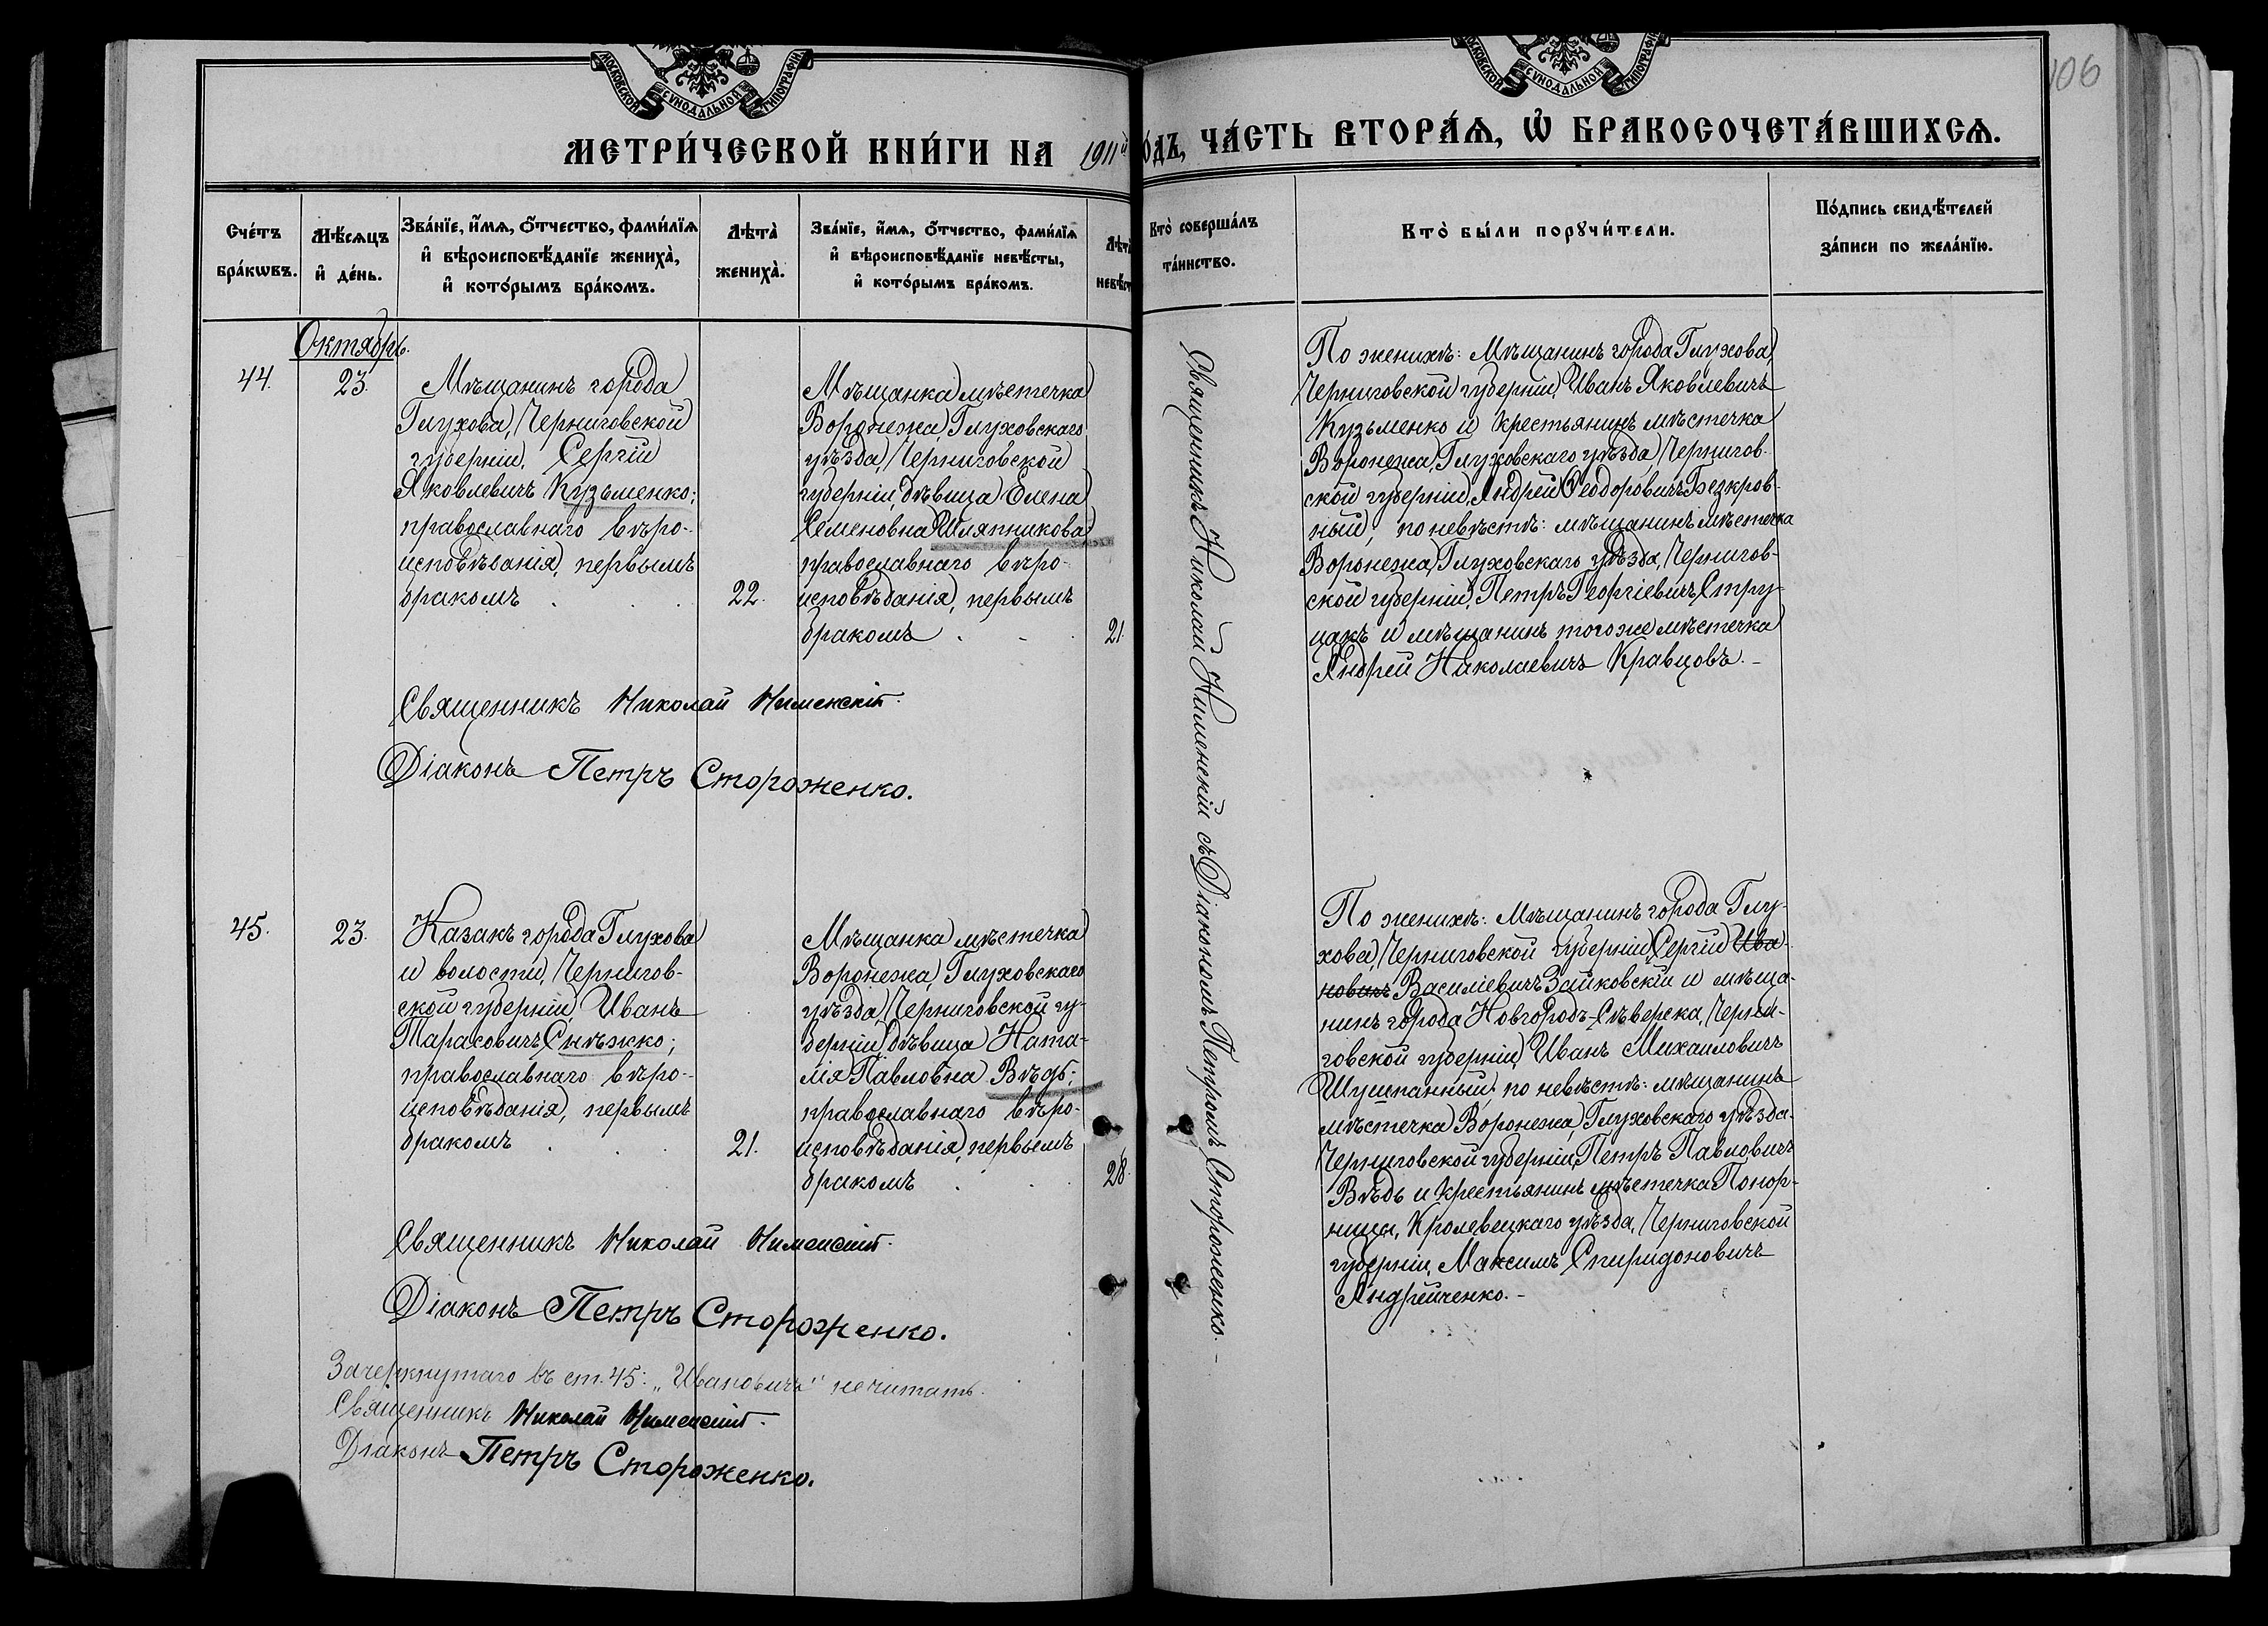 106
МОСКОВСКОЙ СѴНОДАЛЬНОЙ ТИПОГРАФІИ
МОСКОВСКОЙ СѴНОДАЛЬНОЙ ТИПОГРАФІИ
МЕТРИ́ЧЕСКОЙ КНИ́ГИ НА 1911й
ОДЪ, ЧА́СТЬ ВТОРА́Ѧ, Ѡ҆ БРАКОСОЧЕТА́ВШИХСѦ.
Сче́тъ бра́кѡвъ.
Мѣ́сѧцъ и҆ де́нь.
Зва́нїе, и҆́мѧ, ѻ҆́тчество, фами́лїѧ
и҆ вѣроисповѣ́данїе жениха̀,
и҆ кото́рымъ бра́комъ.
Лѣта̀ жениха̀.
Зва́нїе, и҆́мѧ, ѻ҆́тчество, фами́лїѧ
и҆ вѣроисповѣ́данїе невѣ́сты,
и҆ кото́рымъ бра́комъ.
Лѣта
невѣст
Кто̀ соверша́лъ
та́инство.
Кто̀ бы́ли порꙋчи́тели.
По́дпись свидѣ́телей
за́писи по жела́нїю.
Октябрь.
44.
23.
Мѣщанинъ города
Глухова, Черниговской
губерніи, Сергій
Яковлевичъ Кузьменко;
православнаго вѣро-
исповѣданія, первымъ
бракомъ
22.
Мѣщанка мѣстечка
Воронежа, Глуховскаго
уѣзда, Черниговской
губерніи, дѣвица Елена
Семеновна Шляпникова;
православнаго вѣро-
исповѣданія, первымъ
бракомъ
21.
Священникъ Николай Нименскій съ Діакономъ Петромъ Стороженко.-
По женихѣ: Мѣщанинъ города Глухова,
Черниговской губерніи, Иванъ Яковлевичъ
Кузьменко и крестьянинъ мѣстечка
Воронежа, Глуховскаго уѣзда, Чернигов-
ской губерніи, Андрей Ѳеодоровичъ Безкров-
ный; по невѣстѣ: мѣщанинъ мѣстечка
Воронежа, Глуховскаго уѣзда, Чернигов-
ской губерніи, Петръ Георгіевичъ Стру-
цакъ и мѣщанинъ того же мѣстечка
Андрей Николаевичъ Кравцовъ.-
Священникъ Николай Нименскій.
Діаконъ Петръ Стороженко.
45.
23.
Казакъ города Глухова
и волости, Чернигов-
ской губерніи, Иванъ
Тарасовичъ Снѣжко;
православнаго вѣро-
исповѣданія, первымъ
бракомъ
21.
Мѣщанка мѣстечка
Воронежа, Глуховскаго
уѣзда, Черниговской гу-
берніи, дѣвица Ната-
лія Павловна Вѣдь;
православнаго вѣро-
исповѣданія, первымъ
бракомъ
28.
По женихѣ: Мѣщанинъ города Глу-
хова, Черниговской губерніи, Сергій Ива-
новичъ Василіевичъ Зайковскій и мѣща-
нинъ города Новгородъ-Сѣверска, Черни-
говской губерніи, Иванъ Михаиловичъ
Шушпанный; по невѣстѣ: мѣщанинъ
мѣстечка Воронежа, Глуховскаго уѣзда
Черниговской губерніи, Петръ Павловичъ
Вѣдь и крестьянинъ мѣстечка Понор-
ницы, Кролевецкаго уѣзда, Черниговской
губерніи, Максимъ Спиридоновичъ
Андрейченко.-
Священникъ Николай Нименскій.
Діаконъ Петръ Стороженко.
Зачеркнутаго въ ст. 45: „Ивановичъ" не читать.
Священникъ Николай Нименскій.
Діаконъ Петръ Стороженко.